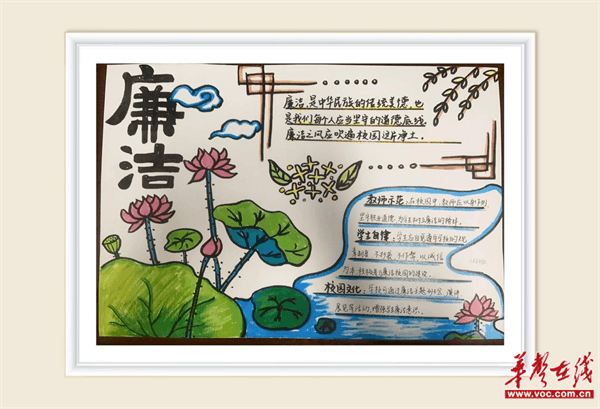 廉洁
廉洁，是中华民族的传统美德，也
是我们每个人应当坚守的道德底线。
廉洁之风应吹遍校园这片净土。
教师示范：在校园中，教师应以身作则
坚守职业道德，为学生树立廉洁的榜样。
学生自律：学生应自觉遵守学校的规
不抄袭、不作弊，以诚信
为本，积极参与廉洁校园的建设。
校园文化：学校可通过廉洁主题班会、演讲
展览等活动，增强学生廉洁意识。
华声在线
www.voc.com.cn